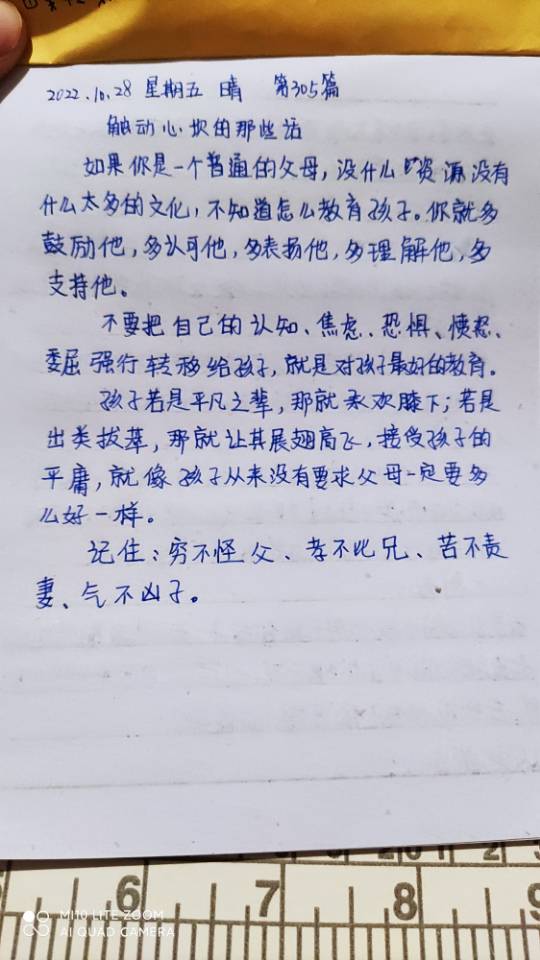 2022.10.28 星期五 晴 第305篇
触动心坎的那些话
如果你是一个普通的父母,没什么资源没有
什么太多的文化,不知道怎么教育孩子。你就多
鼓励他,多认可他,多表扬他,多理解他,多
支持他。
不要把自己的认知、焦虑、恐惧、愤怒、
委屈强行转移给孩子,就是对孩子最好的教育。
孩子若是平凡之辈,那就承欢膝下;若是
出类拔萃,那就让其展翅高飞,接受孩子的
平庸,就像孩子从来没有要求父母一定要多
么好一样。
记住:穷不怪父、孝不比兄、苦不责
妻、气不凶子。
6 7 8 9
MI 10 LITE ZOOM
AI QUAD CAMERA